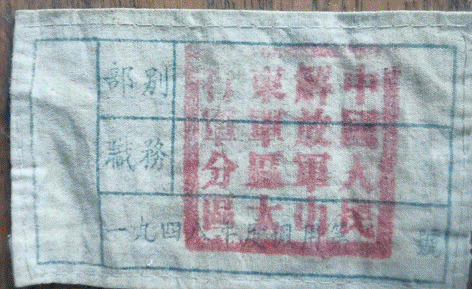 部別
職務
一九四八年度 用 號
中國人民
解放軍山
東軍區大
軍分區